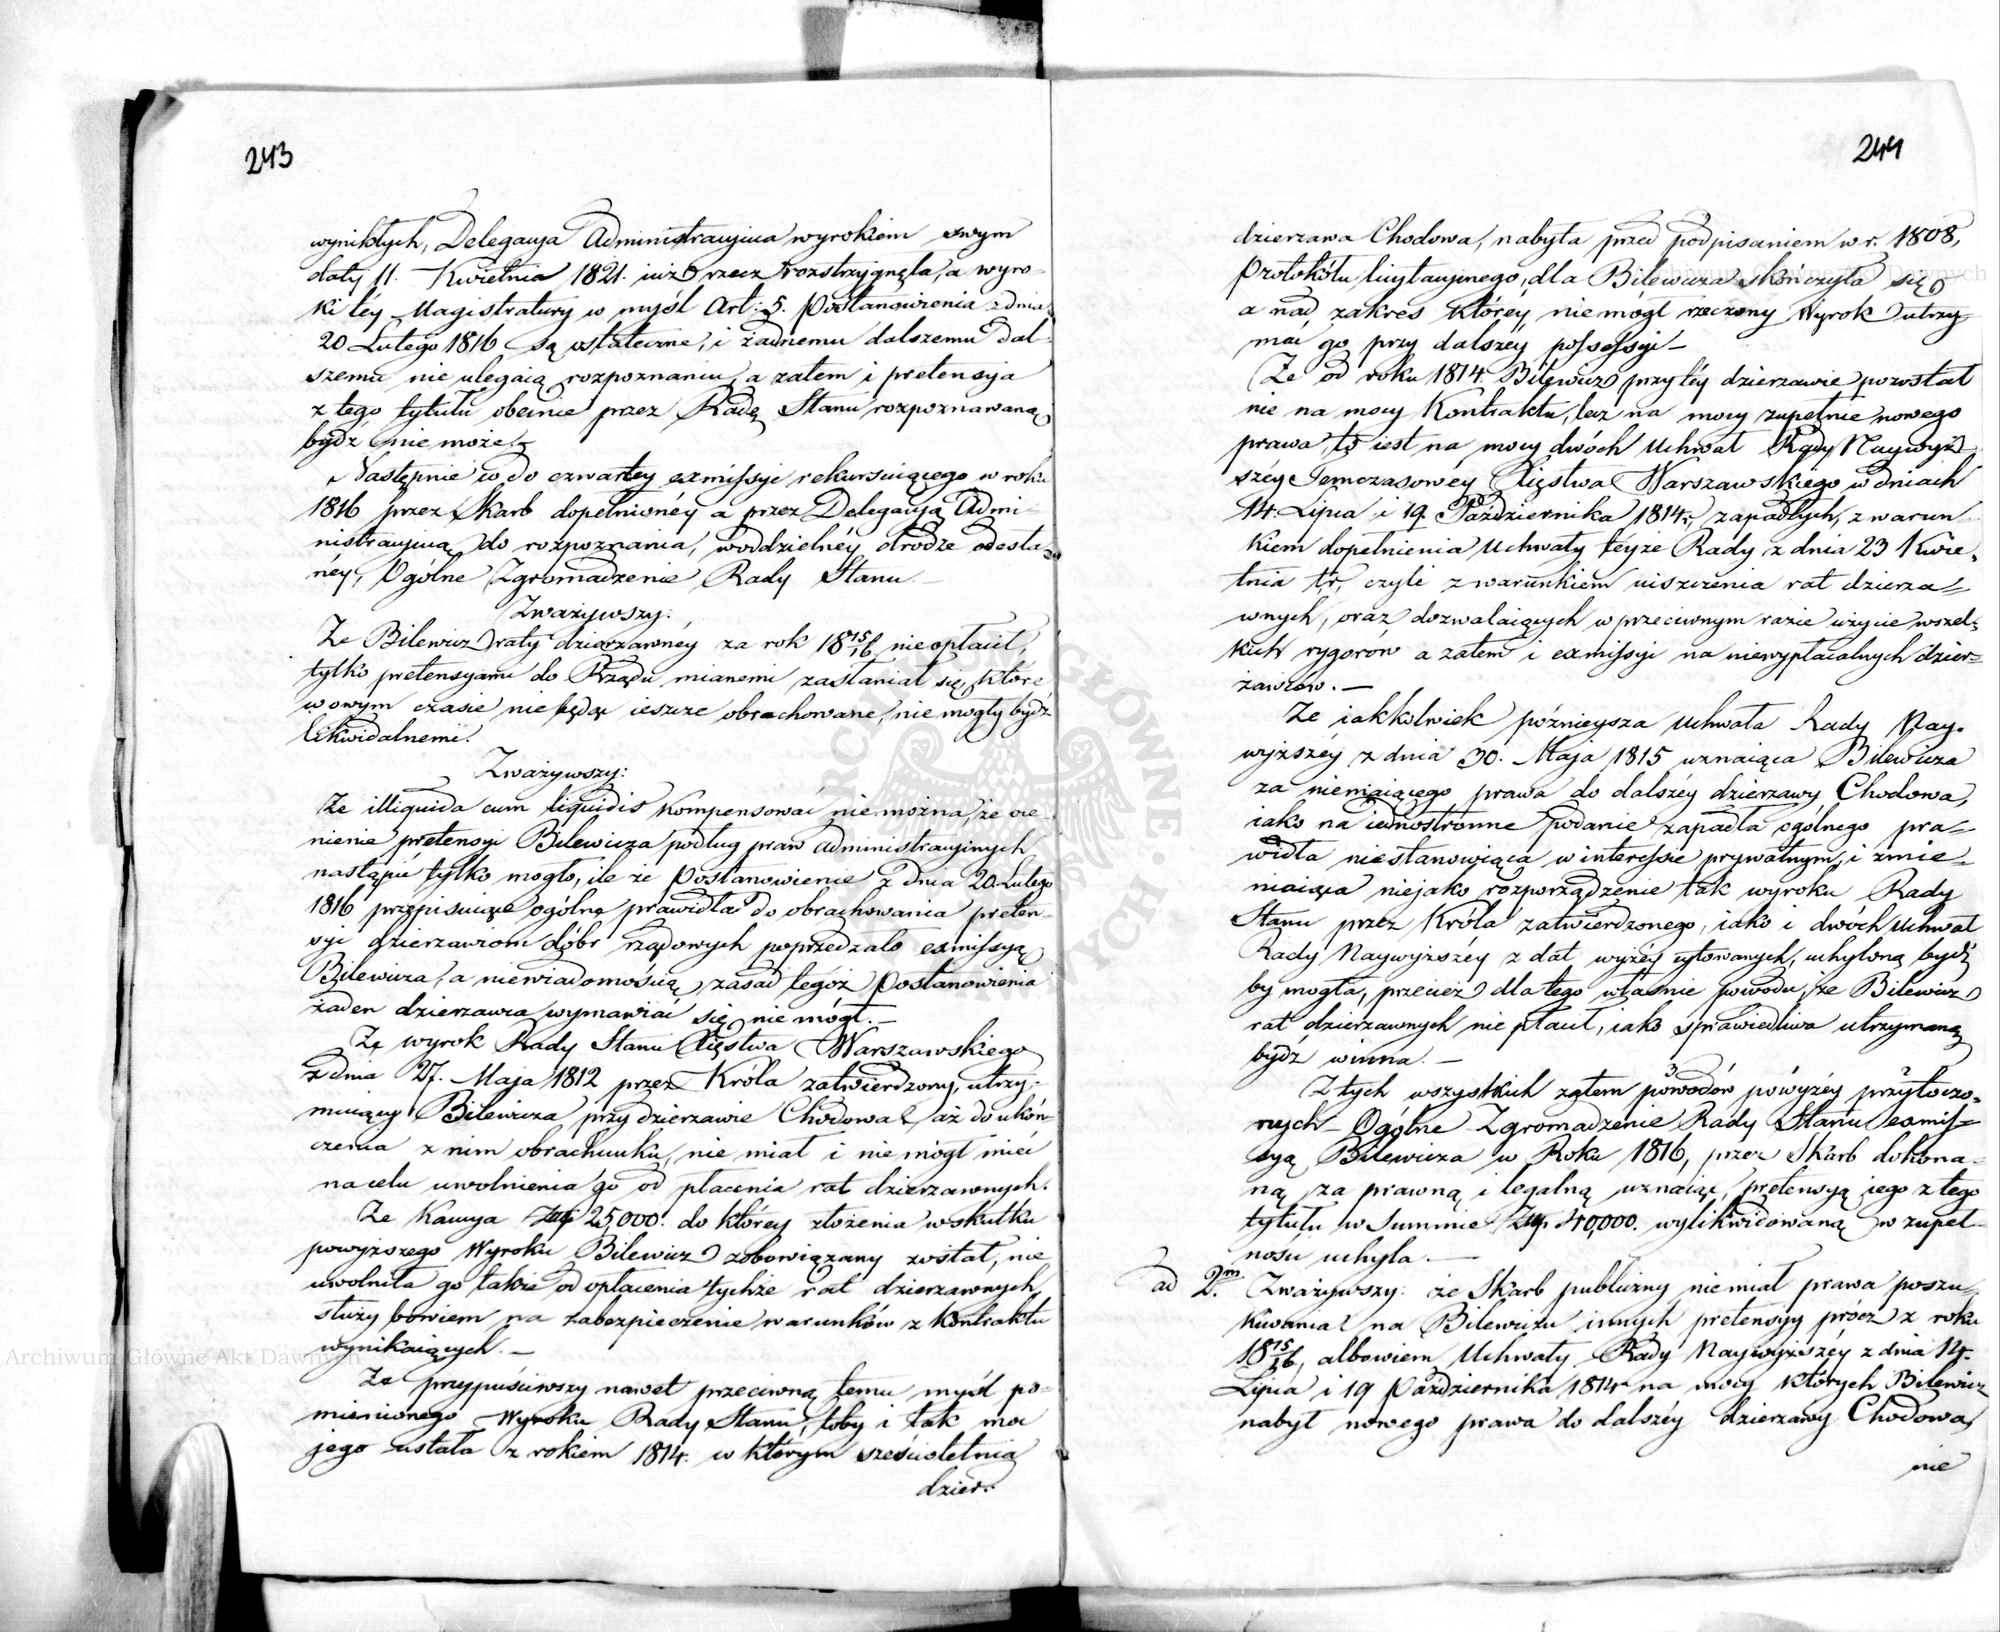 243
wynikłych, Delegacya Administracyina wyrokiem swym
daty 11. Kwietnia 1821. iuż rzecz rozstrzygnęła, a wyro-
ki téy Magistratury w myśl Art: 5. Postanowienia z dnia
20 Lutego 1816 są ostateczne, i żadnemu dalszemu dal-
szemu nie ulegaią rozpoznaniu, a zatem i pretensya
z tego tytułu obecnie przez Radę Stanu rozpoznawaną
bydź nie może.
Następnie co do czwartey exmissyi rekursuiącego w roku
1816 przez Skarb dopełnionéy a przez Delegacyą Admi-
nistracyiną do rozpoznania, w oddzielnéy drodze odesła-
néy, Ogólne Zgromadzenie Rady Stanu. —
Zważywszy:
Że Bilewicz raty dzierzawnéy za rok 18 15/16 nie opłacił,
tylko pretensyami do Rządu mianemi zasłaniał się, które
w owym czasie nie będąc ieszcze obrachowane, nie mogły bydź
likwidalnemi.
Zważywszy:
Że illiquida cum liquidis kompensować nie można, że oce-
nienie pretensyi Bilewicza podług praw administracyinych
nastąpić tylko mogło, ile że Postanowienie z dnia 20. Lutego
1816 przepisuiące ogólne prawidła do obrachowania preten-
syi dzierzawców dóbr rządowych poprzedzało exmissyą
Bilewicza, a niewiadomością zasad tegóż Postanowienia
żaden dzierzawca wymawiać się nie mógł. —
Że wyrok Rady Stanu Xięstwa Warszawskiego
z dnia 27. Maja 1812 przez Króla zatwierdzony, utrzy-
muiący Bilewicza przy dzierzawie Chodowa aż do ukoń-
czenia z nim obrachunku, nie miał i nie mógł mieć
na celu uwolnienia go od płacenia rat dzierzawnych.
Że Kaucya Złp 25,000. do którey złożenia w skutku
powyższego Wyroku Bilewicz zobowiązany został, nie
uwolniła go także od opłacenia tychże rat dzierzawnych,
służy bowiem na zabezpieczenie warunków z Kontraktu
wynikaiących. —
Że przypuściwszy nawet przeciwną temu myśl po-
mienionego Wyroku Rady Stanu, toby i tak moc
jego ustała z rokiem 1814. w którym sześcioletnia
dzier-
244
dzierzawa Chodowa, nabyta przed podpisaniem w r. 1808,
Protokółu licytacyinego, dla Bilewicza skończyła się
a nad zakres któréy, nie mógł rzeczony Wyrok utrzy-
mać go przy dalszey possessyi —
Że od roku 1814 Bilewicz przy téy dzierzawie pozostał
nie na mocy Kontraktu, lecz na mocy zupełnie nowego
prawa, to iest na mocy dwóch Uchwał Rady Naywyż-
széy Temczasowéy Xięstwa Warszawskiego w dniach
14 Lipca i 19 Października 1814 r. zapadłych, z warun-
kiem dopełnienia Uchwały téyże Rady z dnia 23 Kwie-
tnia t.r. czyli z warunkiem uiszczenia rat dzierza-
wnych, oraz dozwalaiących w przeciwnym razie użycie wszel-
kich rygorów a zatem i exmissyi na niewypłacalnych dzier-
żawców. —
Że iakkolwiek późnieysza Uchwała Rady Nay-
wyższéy z dnia 30. Maja 1815 uznaiąca Bilewicza
za niemaiącego prawa do dalszéy dzierzawy Chodowa,
iako na iednostronne podanie zapadła ogólnego pra-
widła niestanowiąca w interessie prywatnym, i zmie-
niaiąca niejako rozporządzenie tak wyroku Rady
Stanu przez Króla zatwierdzonego, iako i dwóch Uchwał
Rady Naywyższéy z dat wyżéy cytowanych, uchyloną bydź
by mogła, przecież dla tego właśnie powodu, że Bilewicz
rat dzierzawnych nie płacił, iako sprawiedliwa utrzymaną
bydź winna. —
Z tych wszystkich zatem powodów powyżéy przytoczo-
nych — Ogólne Zgromadzenie Rady Stanu exmis-
syą Bilewicza w Roku 1816, przez Skarb dokona-
ną za prawną i legalną uznaiąc, pretensyą iego z tego
tytułu w Summie Złp 40,000. wylikwidowaną w zupeł-
nosci uchyla. —
ad 2m. Zważywszy: że Skarb publiczny nie miał prawa poszu-
kiwania na Bilewiczu innych pretensyy prócz z roku
18 15/16, albowiem Uchwały Rady Naywyższéy z dnia 14.
Lipca i 19 Października 1814 na mocy których Bilewicz
nabył nowego prawa do dalszéy dzierzawy Chodowa,
nie
Archiwum Główne Akt Dawnych
Archiwum Główne Akt Dawnych